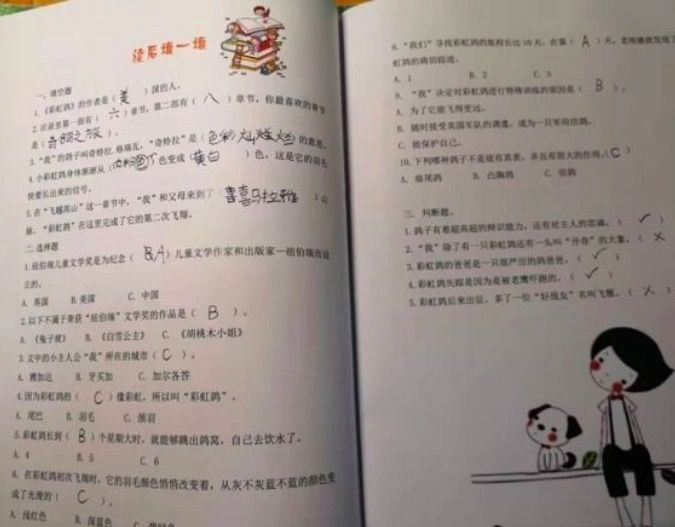 读后填一填
一、填空题
1.《彩虹鸽》的作者是（美）国的人。
2.目录里第一部有（六）章节，第二部有（八）章节，你最喜欢的章节
是（奇明之旅）。
3.“我”的鸽子叫奇特拉.格瑞瓦，“奇特拉”是（色彩灿烂）的意思。
4.小彩虹鸽身体渐渐从（ 色）色变成（黄白）色，这是它的羽毛
快要长出来的信号。
5.在“飞越高山”这一章节中，“我”和父母来到了（喜马拉雅）山
脉，“彩虹鸽”在这里完成了它的第二次飞翔。
二.选择题
1.纽伯瑞儿童文学奖是为纪念（ A）儿童文学作家和出版家一纽伯瑞而设
立的。
A. 英国 B.美国 C. 中国
2.以下不属于荣获“纽伯瑞”文学奖的作品是（ B ）。
A. 《兔子坡》 B. 《白雪公主》 C. 《胡桃木小姐》
3.文中的小主人公“我”所在的城市（ C ）。
A. 雅加达 B. 牙买加 C. 加尔各答
4.因为彩虹鸽的（ C ）像彩虹，所以叫“彩虹鸽”。
A. 尾巴 B. 羽毛 C. 颈羽
5.彩虹鸽长到（ B ）个星期大时，就能够跳出鸽窝，自己去饮水了。
A. 4 B. 5 C. 6
6. 在彩虹鸽初次飞翔时，它的羽毛颜色悄悄改变着，从灰不灰蓝不蓝的颜色变
成了光滑的（ C ）。
A. 浅红色 B. 深蓝色
8.“我们”寻找彩虹鸽的旅程长达10天，在第（ A ）天，老喇嘛就发现了
虹鸽的确切踪迹。
A. 1 B. 2 C. 3
9. “我”决定对彩虹鸽进行特殊训练的原因是（ B ）。
A. 为了它能飞得更远。
B. 随时接受英国军队的调遣，成为一只军用信鸽。
C. 能保护自己。
10.下列哪种鸽子不是很有真素，并且有很大的作用。（C）
A. 扇尾鸽 B. 凸胸鸽 C. 信鸽
三. 判断题。
1.鸽子有着超高超的辩识能力，还有对主人的忠诚。（ ✓ ）
2.“我”除了有一只彩虹鸽还有一头叫“卡奇”的大象。（ × ）
3.彩虹鸽的爸爸是一只很严厉的鸽爸爸。（ ✓ ）
4.彩虹鸽失踪是因为是被老鹰吓跑的。（ ✓ ）
5.彩虹鸽后来出征，多了一位“好战友”名叫飞雅。（ × ）